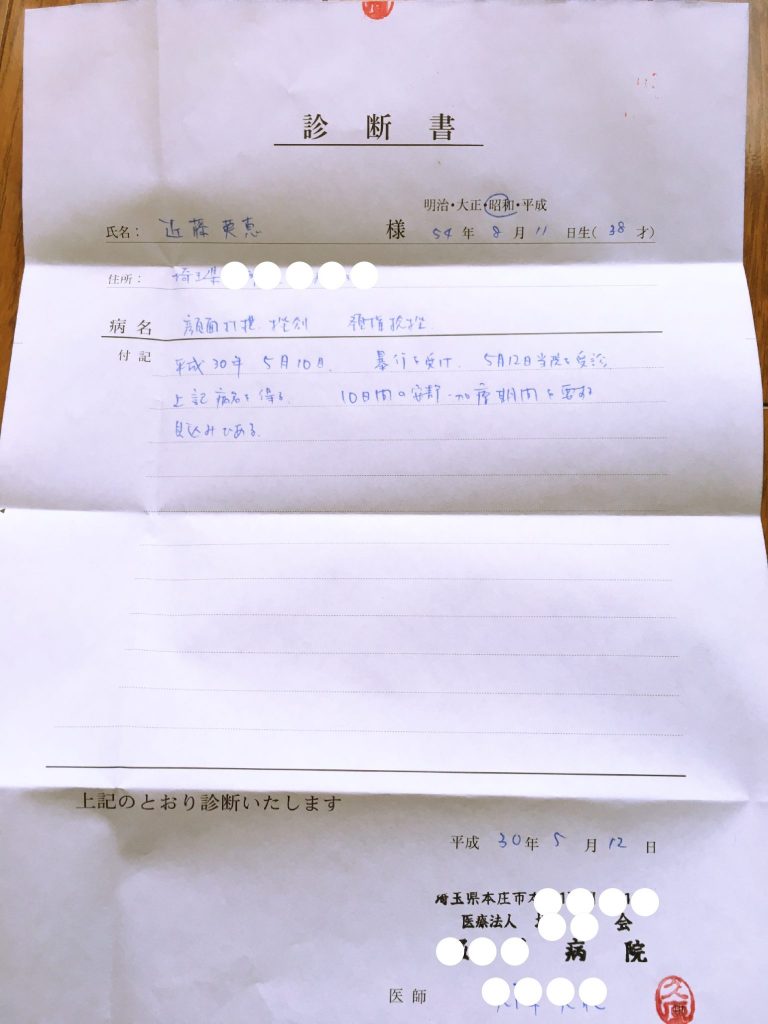 診断書
明治・大正・昭和・平成
氏名: 近藤 英恵 様 54年 8月 11日生(38才)
住所: 埼玉県
病名 顔面打撲、挫創 頚椎捻挫
付記 平成30年 5月10日、暴行を受け、5月12日当院を受診
上記病名を得る。 10日間の安静・加療期間を要する
見込みである。
上記のとおり診断いたします
平成 30年 5月 12日
埼玉県本庄市
医療法人 会
病院
医師